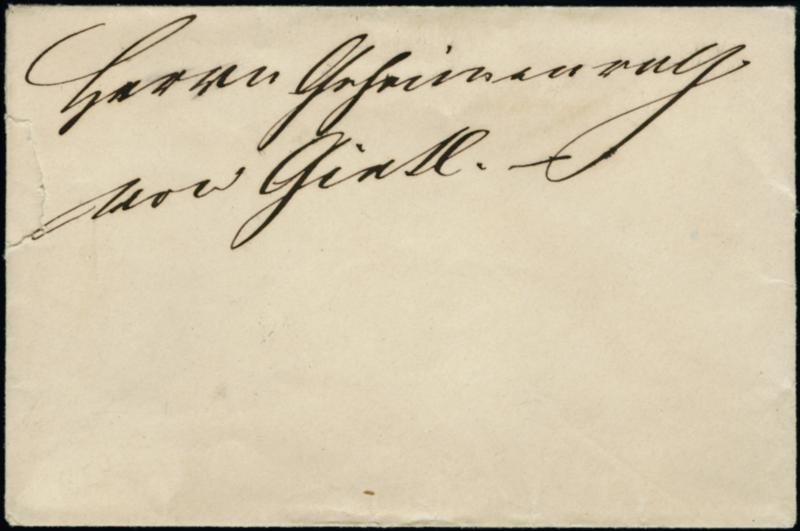 Herrn Geheimenrath
von Gietl. –